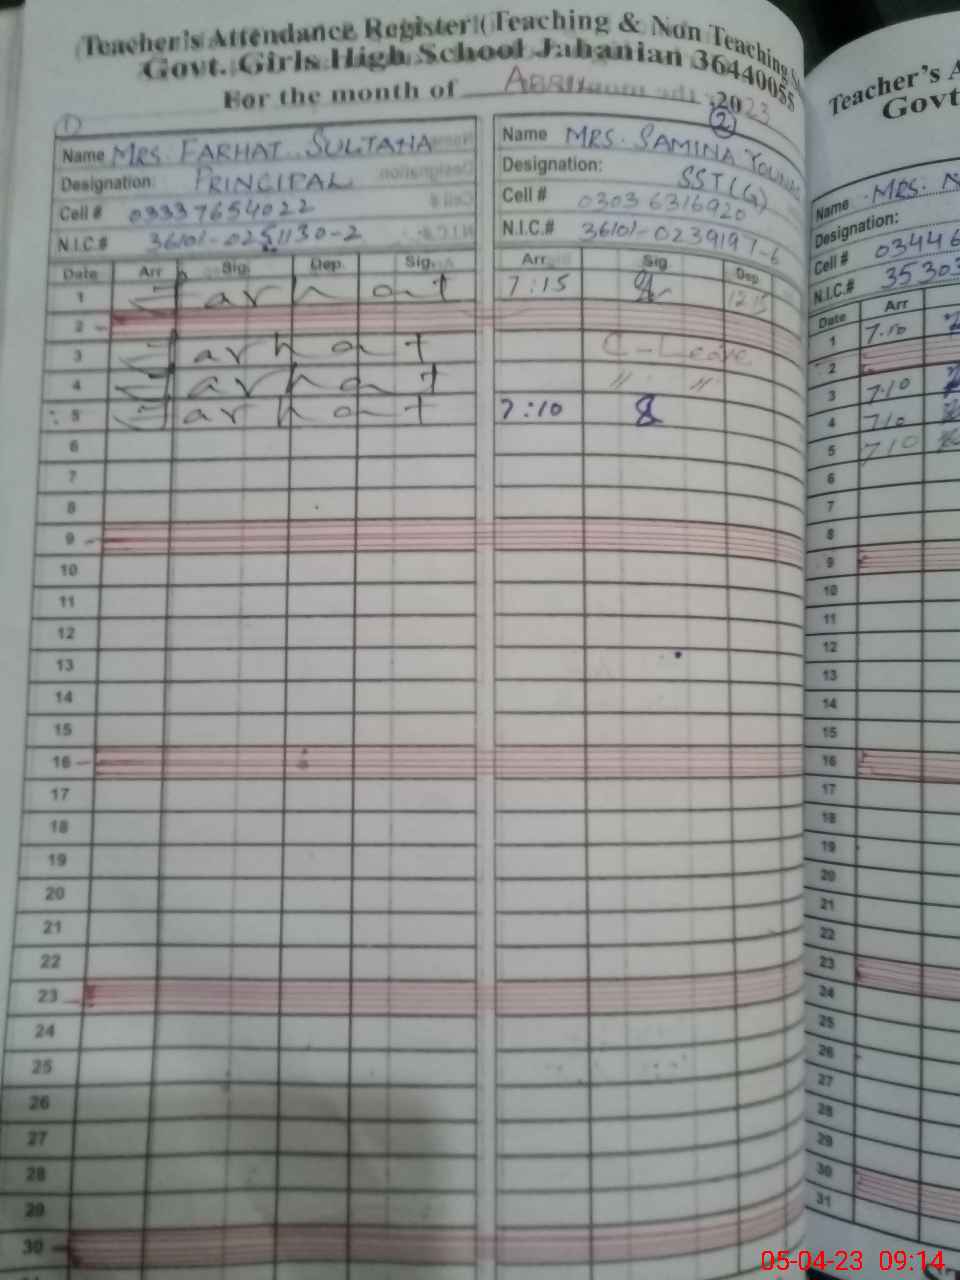 Teacher's Attendance Register (Teaching & Non Teaching
Govt. Girls High School Jahanian 36440055
For the month of April 2023
1
Name MRS. FARHAT SULTANA
Designation: PRINCIPAL
Cell # 03337654022
N.I.C.# 36101-0251130-2
Date Arr Sig. Dep. Sig.
1 Farhat
2
3 Farhat
4 Farhat
5 Farhat
6
7
8
9
10
11
12
13
14
15
16
17
18
19
20
21
22
23
24
25
26
27
28
29
30
2
Name MRS. SAMINA YOUNAS
Designation: SST(G)
Cell # 03036316920
N.I.C.# 36101-0239197-6
Arr. Sig. Dep.
7:15 12:15
C-Leave
〃 〃
7:10
Teacher's
Govt
Name MRS:
Designation:
Cell # 03446
N.I.C.# 35303
Date Arr
1 7.10
2
3 7.10
4 710
5 710
6
7
8
9
10
11
12
13
14
15
16
17
18
19
20
21
22
23
24
25
26
27
28
29
30
31
05-04-23 09:14